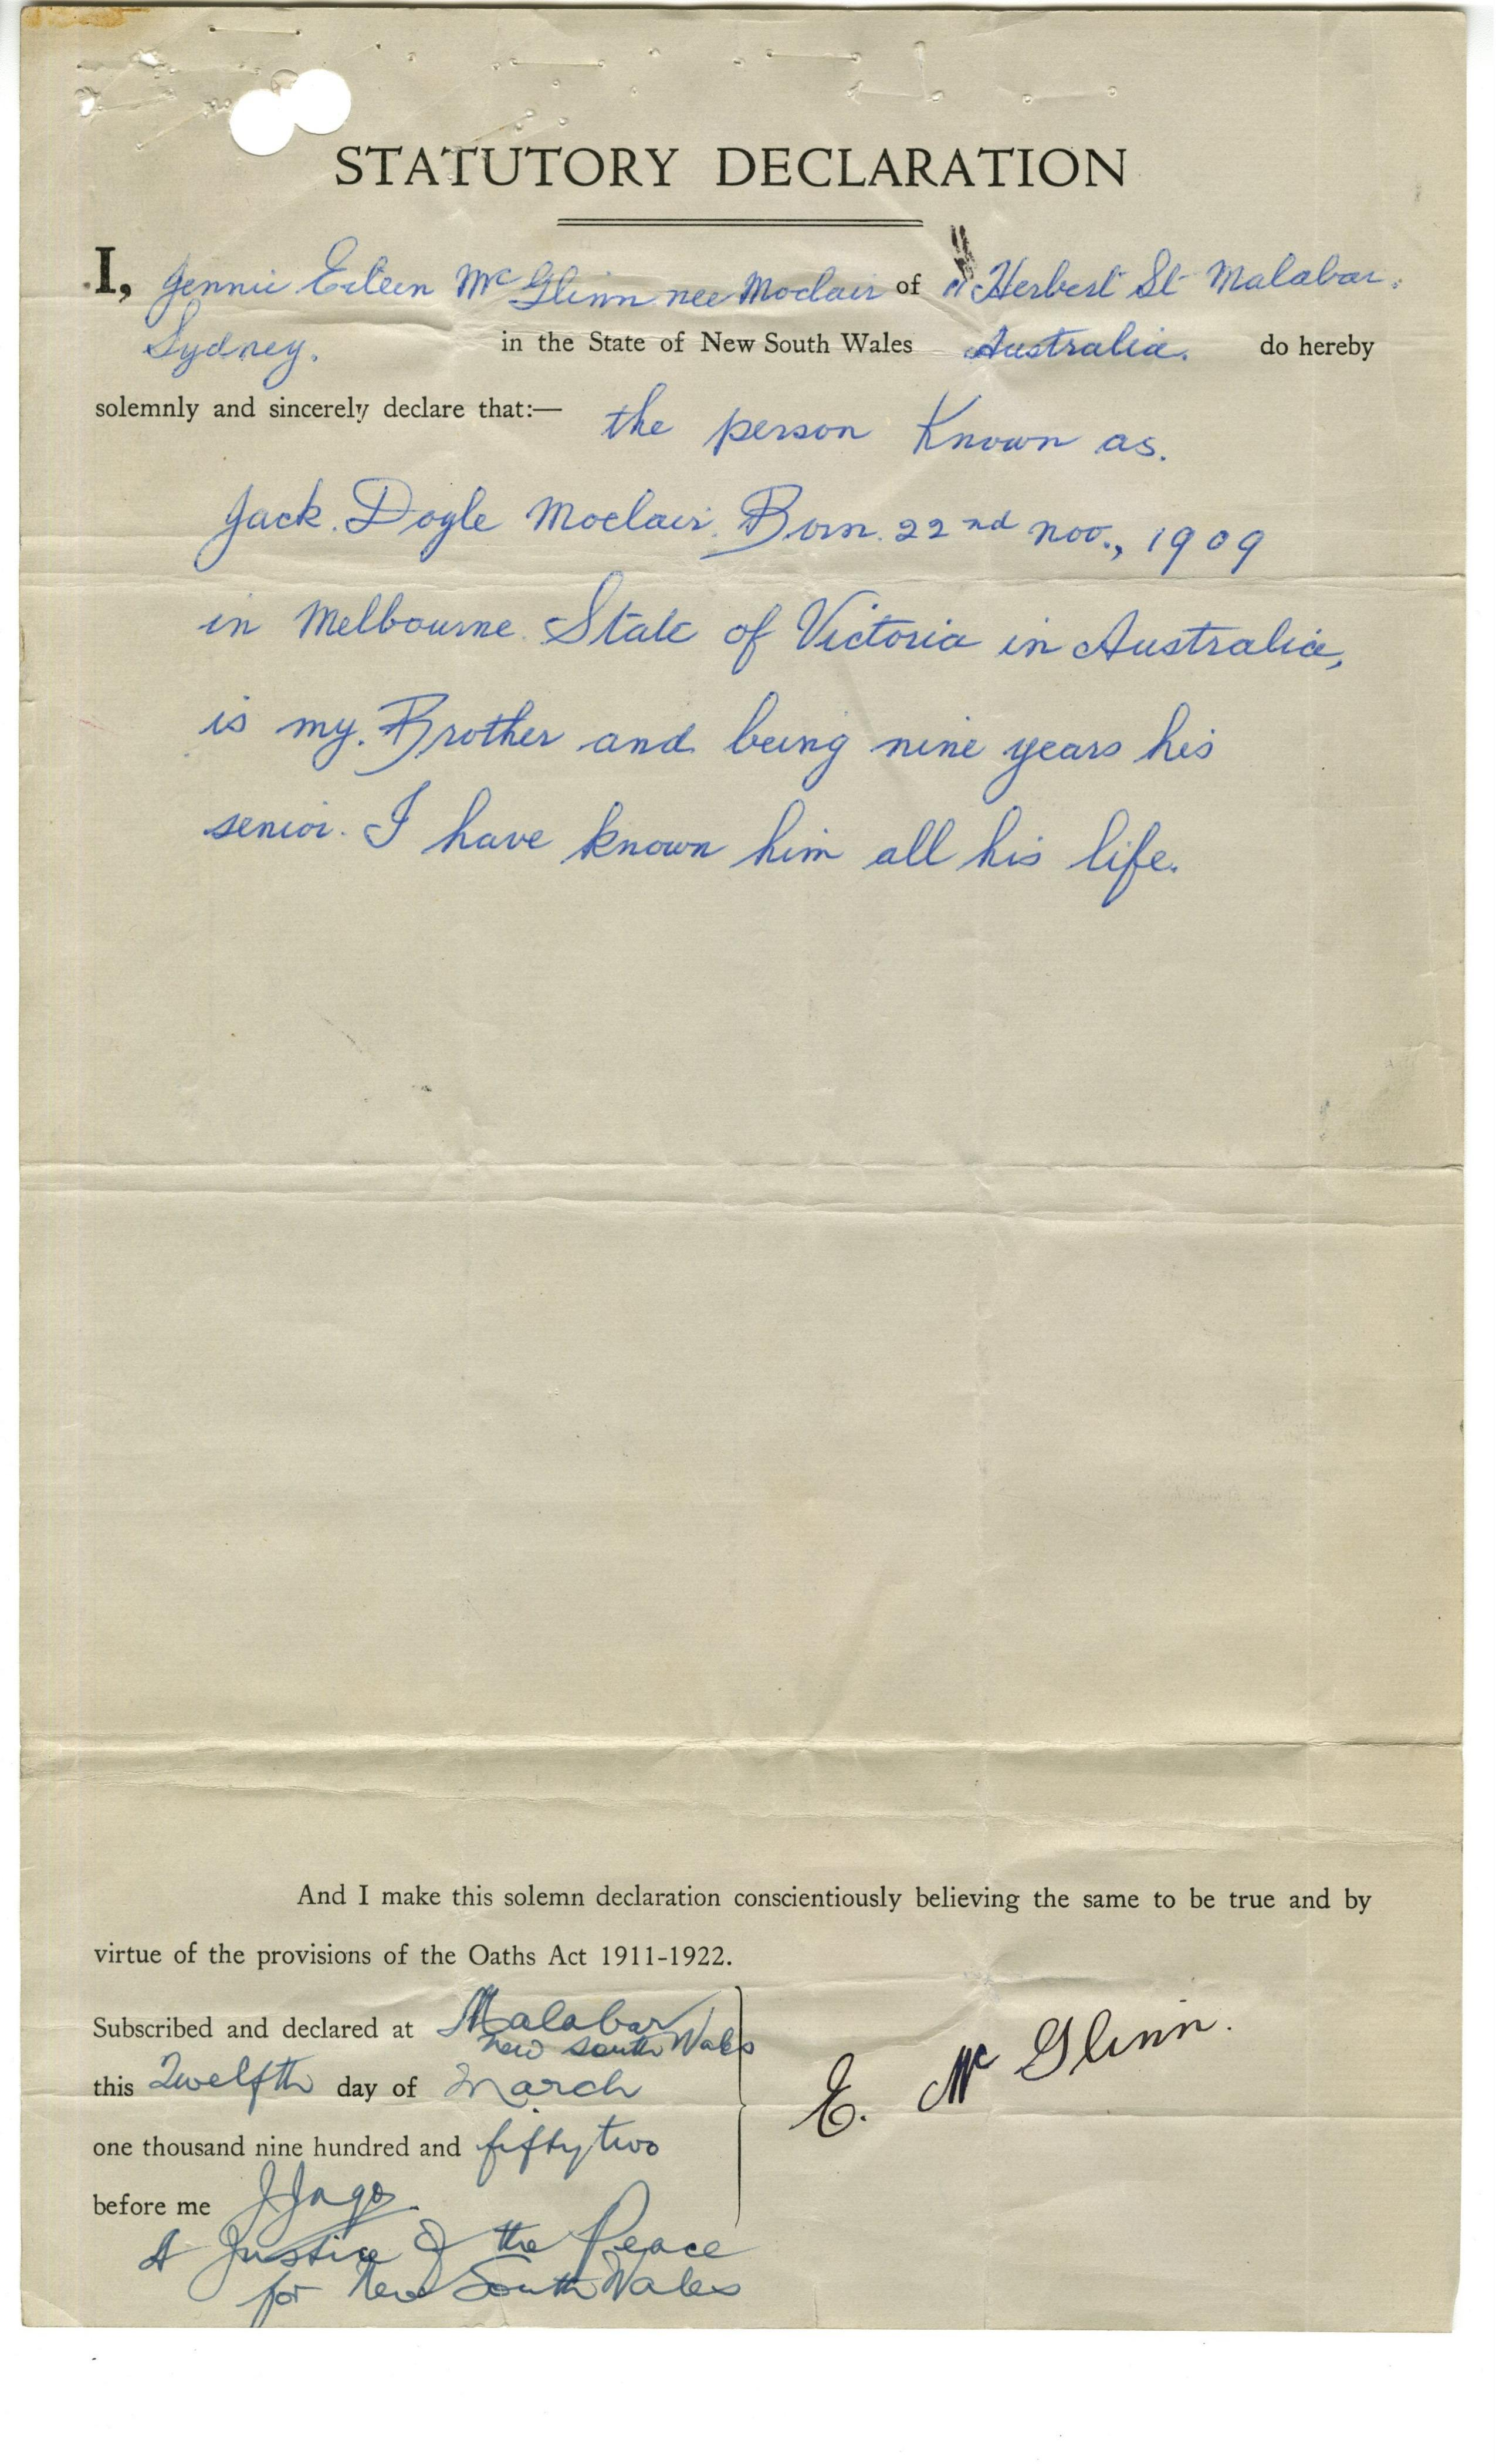 STATUTORY DECLARATION
I, Jennie Eileen McGlinn nee Moclair of Herbert St Malabar.
Sydney. in the State of New South Wales Australia. do hereby
solemnly and sincerely declare that:— the person Known as.
Jack. Doyle Moclair. Born. 22nd Nov., 1909
in Melbourne. State of Victoria in Australia,
is my. Brother and being nine years his
senior. I have known him all his life.
And I make this solemn declaration conscientiously believing the same to be true and by
virtue of the provisions of the Oaths Act 1911-1922.
Subscribed and declared at Malabar
New South Wales
this Twelfth day of March
one thousand nine hundred and fifty two
before me J Jago.
A Justice of the Peace
for New South Wales
E. McGlinn.